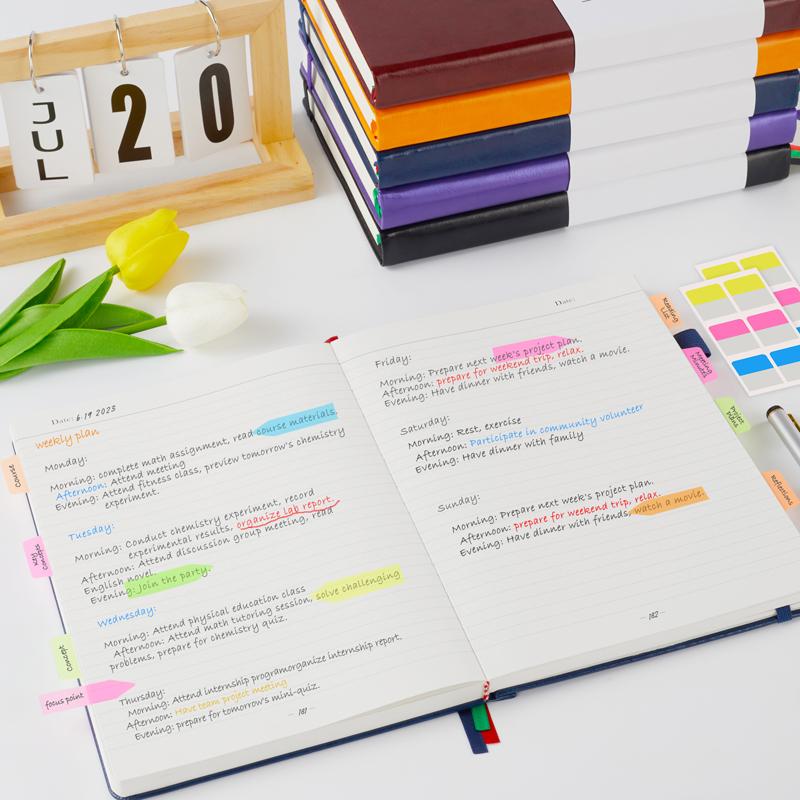 JUL
20
Date: 6.19 2023
weekly plan
Monday:
Morning: complete math assignment, read course materials.
Afternoon: Attend meeting
Evening: Attend fitness class, preview tomorrow's chemistry
experiment.
Tuesday:
Morning: Conduct chemistry experiment, record
experimental results, organize lab report.
Afternoon: Attend discussion group meeting, read
English novel.
Evening: Join the party.
Wednesday:
Morning: Attend physical education class
Afternoon: Attend math tutoring session, solve challenging
problems, prepare for chemistry quiz.
Thursday:
Morning: Attend internship programorganize internship report.
Afternoon: Have team project meeting
Evening: prepare for tomorrow's mini-quiz.
181
Course
Key
Concepts
Concept
focus point
Date:
Friday:
Morning: Prepare next week's project plan.
Afternoon: prepare for weekend trip, relax.
Evening: Have dinner with friends, watch a movie.
Saturday:
Morning: Rest, exercise
Afternoon: Participate in community volunteer
Evening: Have dinner with family
Sunday:
Morning: Prepare next week's project plan.
Afternoon: prepare for weekend trip, relax.
Evening: Have dinner with friends, watch a movie.
182
Reading
List
Meeting
Minutes
Project
Plans
Reflections